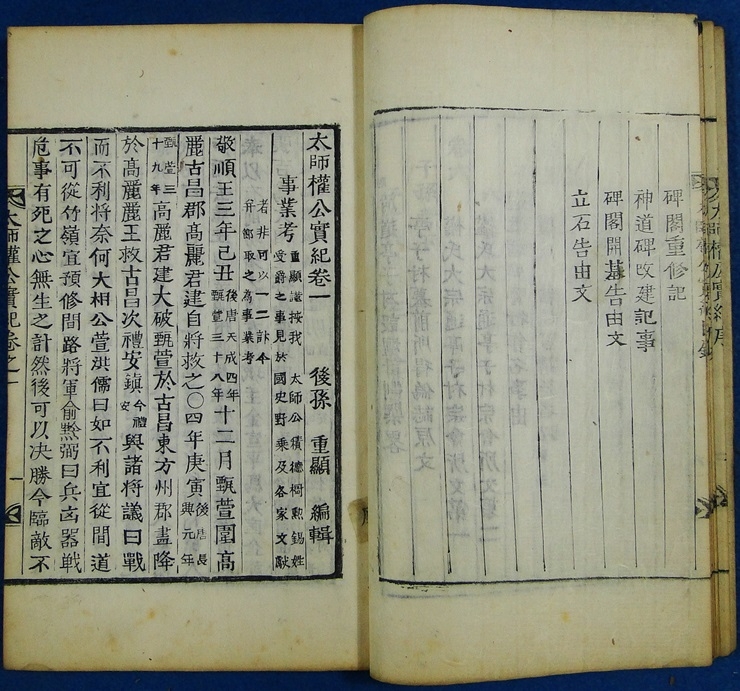 碑閣重修記
神道碑改建記事
碑閣開基告由文
立石告由文
太師權公實紀卷一
後孫 重顯 編輯
事業考
重顯謹按我 太師公積德樹勲錫姓
受爵之事見於國史野乘及各家文獻
者非可以一二計今
敬順王三年己丑
後唐天成四年
甄萱三十八年
十二月甄萱圍高
麗古昌郡高麗君建自將救之〇四年庚寅
後唐長
興元年
甄萱三
十九年
高麗君建大破甄萱於古昌東方州郡盡降
於高麗麗王救古昌次禮安鎮
今禮
安
與諸將議曰戰
而不利將奈何大相公萱洪儒曰如不利宜從間道
不可從竹嶺宜預修間路將軍俞黔弼曰兵凶器戰
危事有死之心無生之計然後可以決勝今臨敵不
太師權公實紀卷之一